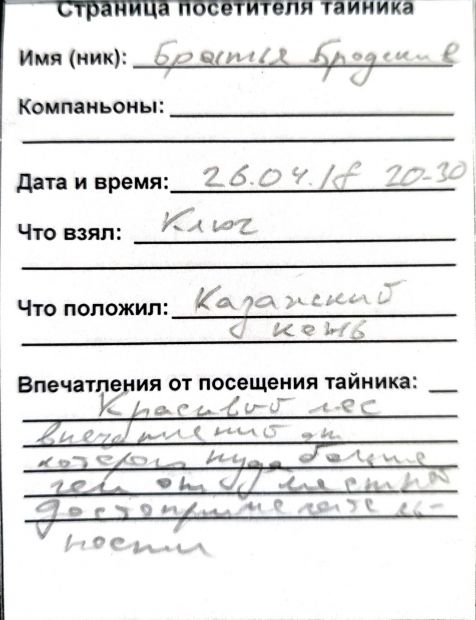 Страница посетителя тайника
Имя (ник): Братья Бродские
Компаньоны:
Дата и время: 26.04.18 20-30
Что взял: Ключ
Что положил: Казанский
Впечатления от посещения тайника:
Красивой лес
от
которого больше
чем от местной
достопримечатель-
ности